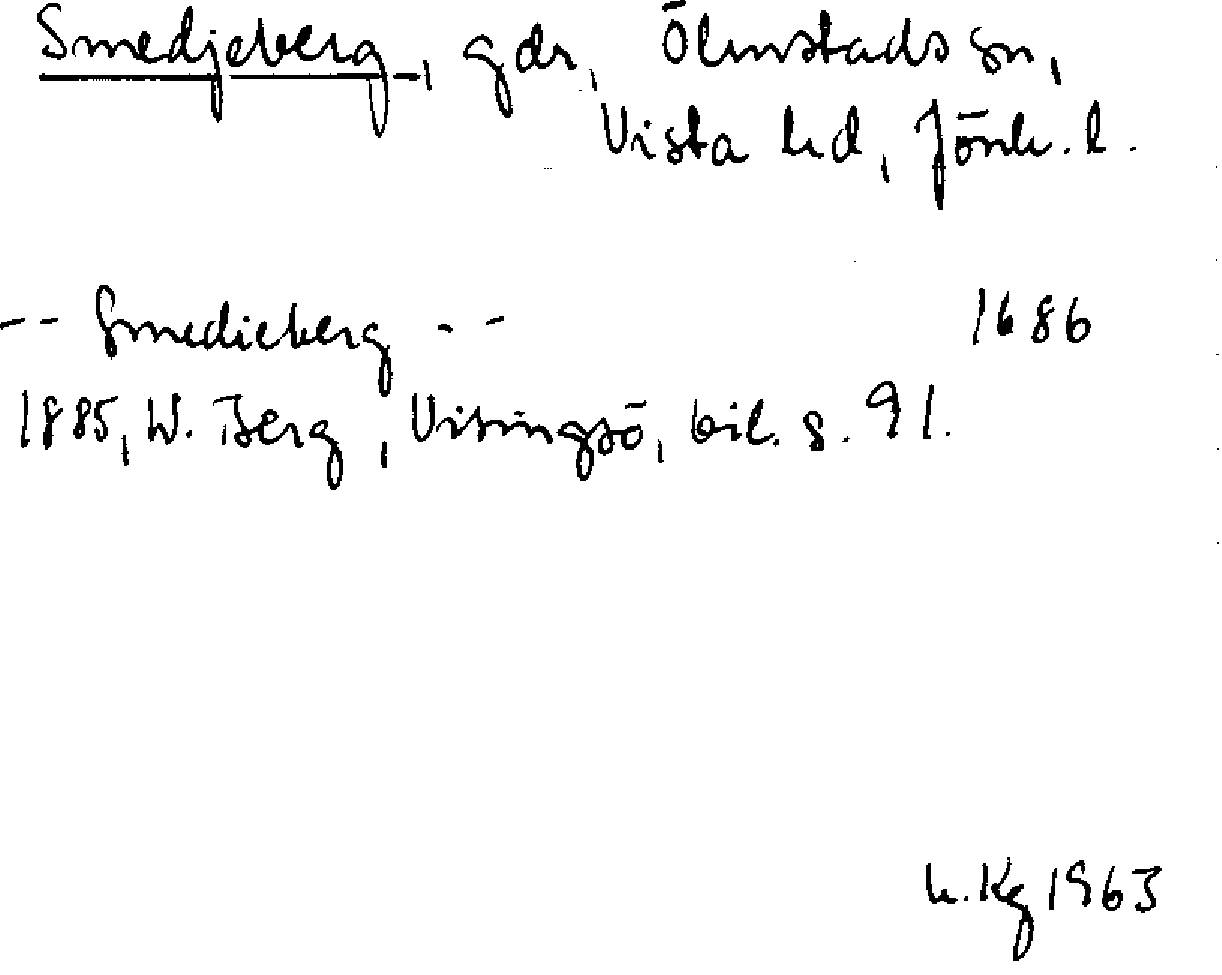 Smedjeberg, gdr, Ölmstads sn,
Vista hd, Jönk. l.
-- Smedieberg -- 1686
1885, W. Berg, Visingsö, bil. s. 91.
h. Kg 1963